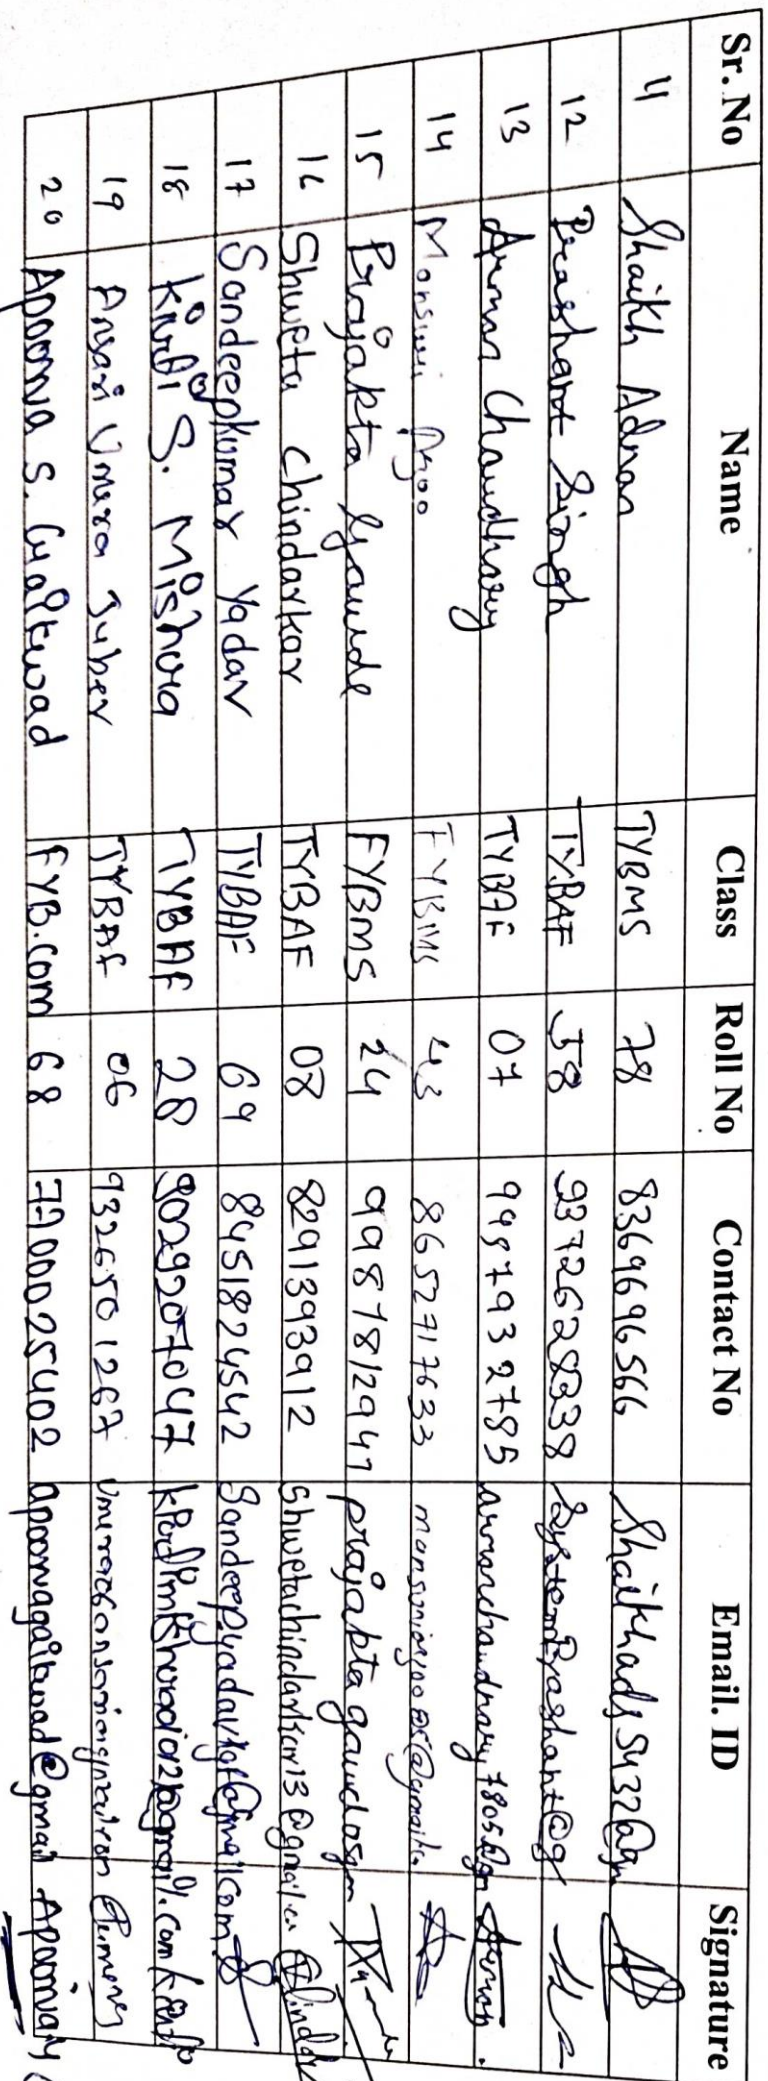 Sr. No Name Class Roll No Contact No Email. ID Signature
11 Shaikh Adnan TYBMS 78 8369696566 Shaikhads5432@gm
12 Prashant Singh TYBAF 58 9372628338 SystemPrashant@g
13 Arman Chaudhary TYBAF 07 9987932785 armanchaudhary7805@gm Arman.
14 FYBMS 43 8652717633
15 Prajakta Gawde FYBMS 24 9987812947 prajaktagawdesgm
16 Shweta Chindarkar TYBAF 08 8291393912 Shwetachindarkar13@gmail.co
17 Sandeepkumar Yadav TYBAF 69 8451824542
18 Kirti S. Mishra TYBAF 28 9029207047
19 Ansari Umera Juber TYBAF 06 9326501267
20 Apoorva S. Gaikwad FYB.Com 68 7700025402 apoorvagaikwad@gmail Apoorva